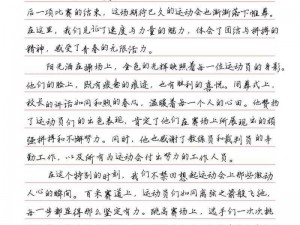 后一项比赛的结束，这场期待已久的运动会也渐渐落下帷幕。
在这里，我们见证了速度与力量的魅力，体会了团结与拼搏的
精神，感受了青春的无限活力。
阳光洒在操场上，金色的光辉映照着每一位运动员的身影。
他们的脸上，既有疲惫的痕迹，也有胜利的喜悦。闭幕式上，
校长的讲话如同和煦的春风，温暖着每一个人的心田。他赞扬
了运动员们的出色表现，肯定了他们在赛场上所展现出的顽
强拼搏和不懈努力。同时，他也感谢了教练员和裁判员的辛
勤工作，以及所有为运动会付出努力的工作人员。
在这个特别的时刻，我们不禁回想起运动会上那些激动
人心的瞬间。百米赛道上，运动员们如同离弦之箭般飞驰，
每一步都显得那么坚定有力。跳高赛场上，选手们一次次挑